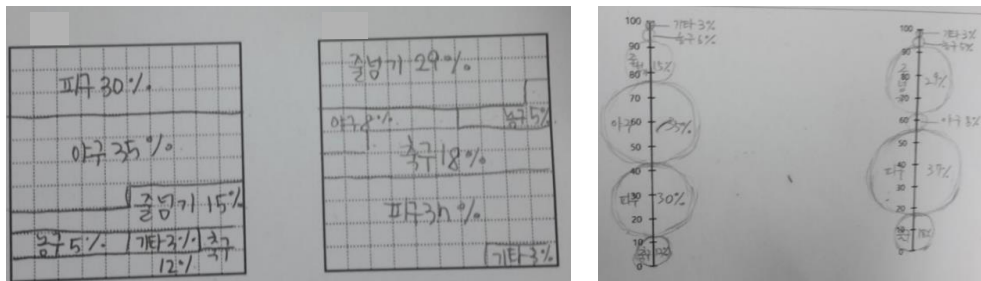 피구 30%
야구 35%
줄넘기 15%
농구 5%
기타 3%
축구
12%
줄넘기 29%
야구 8%
농구 5%
축구 18%
피구 3n%
기타 3%
100
90
80
70
60
50
40
30
20
10
0
기타 3%
15%
야구
35%
피구 30%
12%
100
90
80
70
60
50
40
30
20
10
0
기타 3%
농구 5%
29%
야구 8%
피구
18%